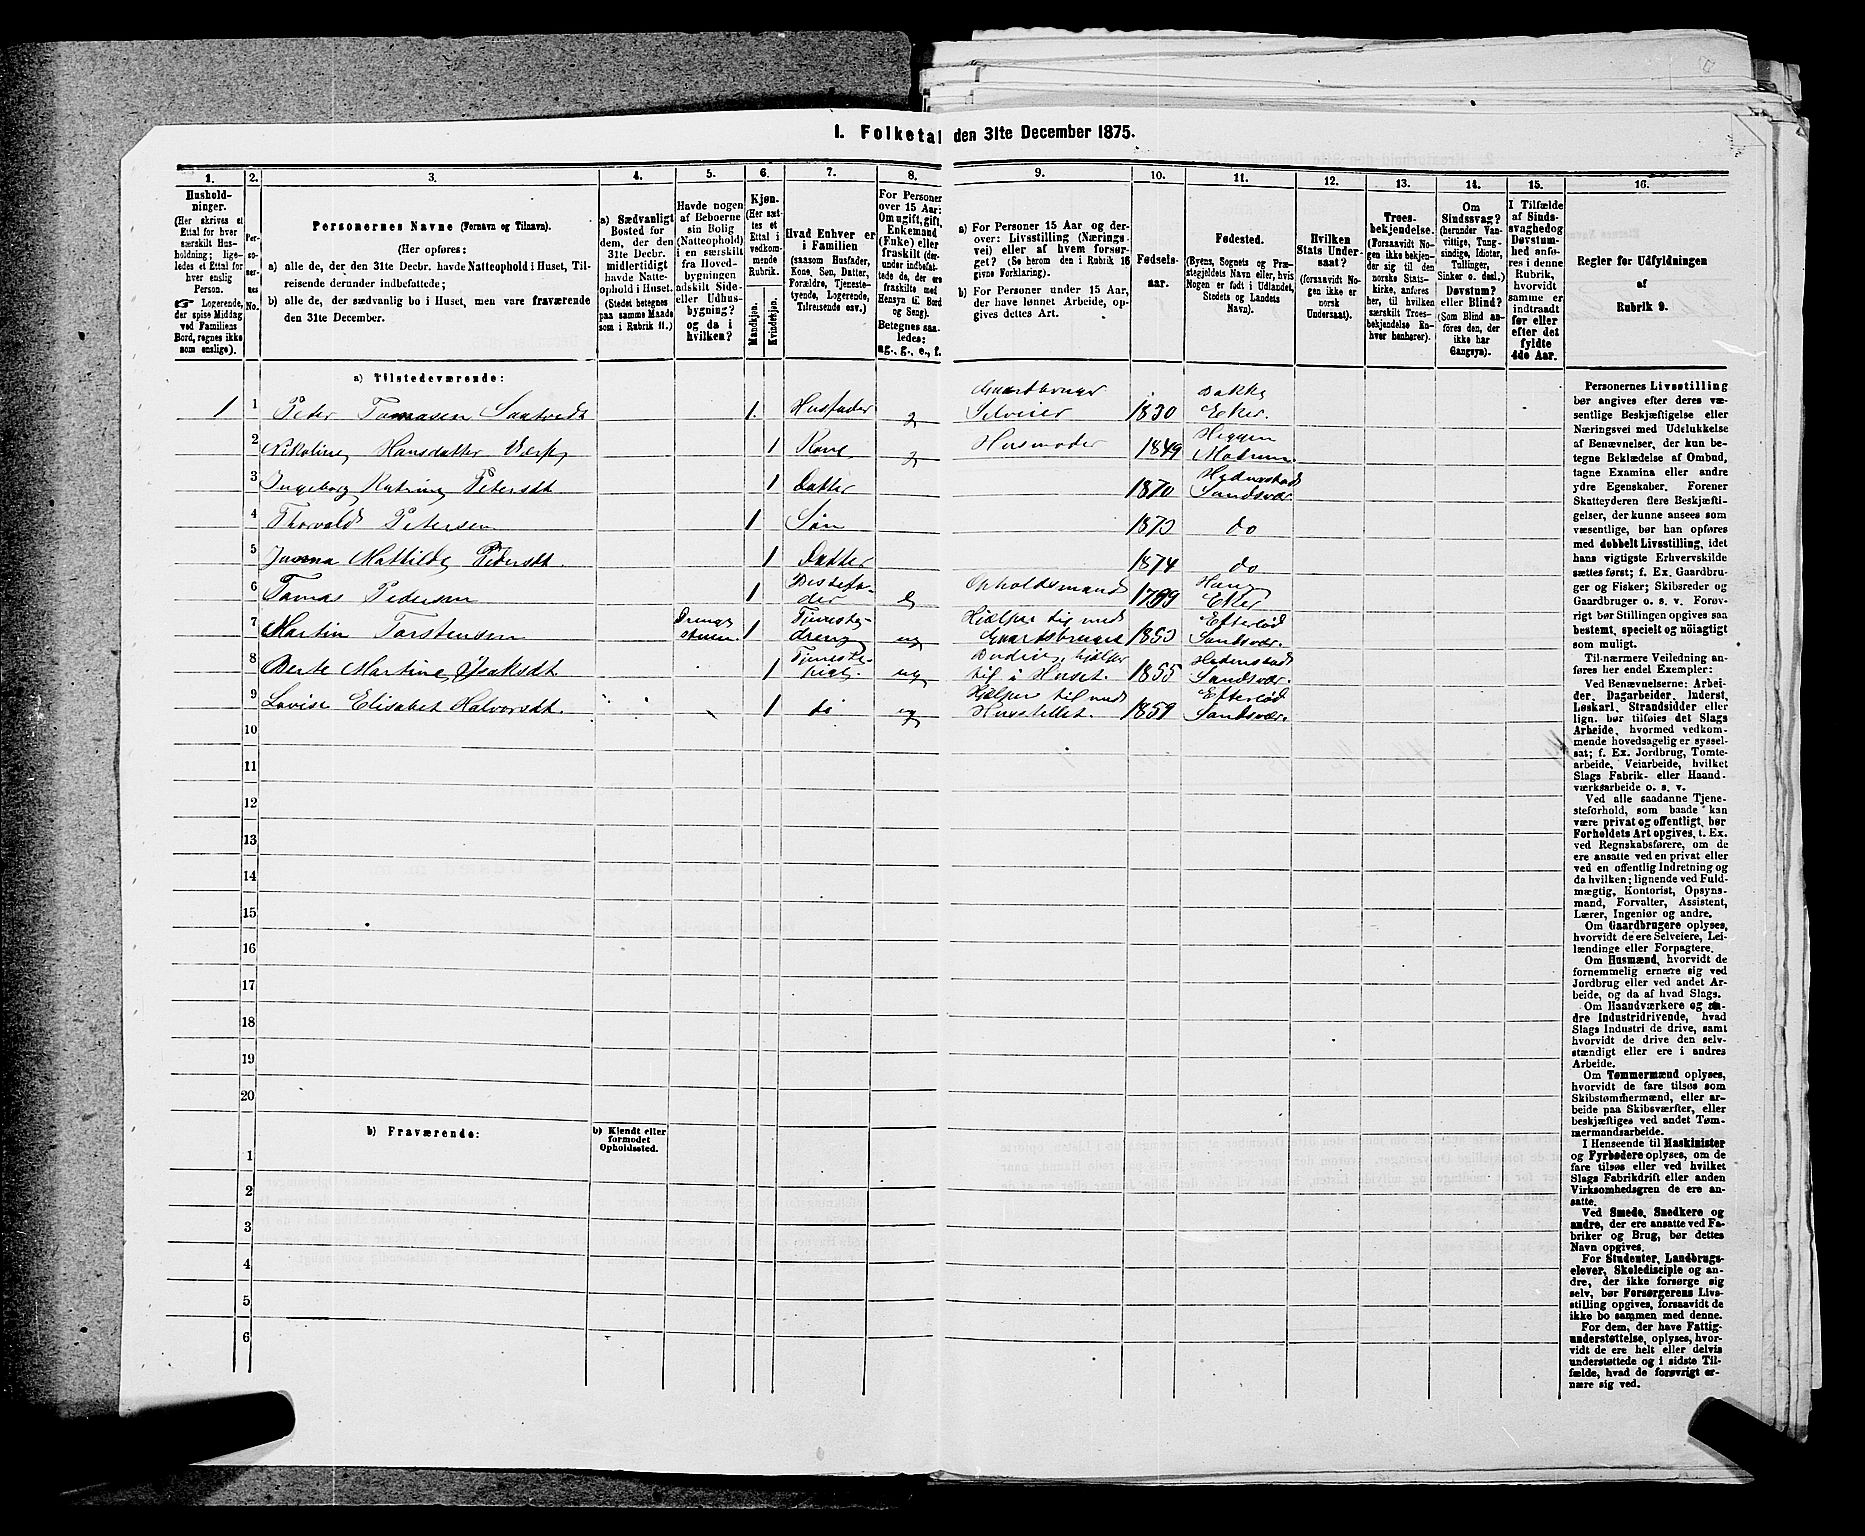 I. Folketal den 31te December 1875.
1.
Hushold-
ninger.
(Her skrives et
Ettal for hver
særskilt Hus-
holdning; lige-
ledes et Ettal for
hver enslig
Person.
Logerende,
der spise Middag
ved Familiens
Bord, regnes ikke
som enslige).
2.
Per-
so-
ner-
nes
No.
3.
Personernes Navne (Fornavn og Tilnavn).
(Her opføres:
a) alle de, der den 31te Decbr. havde Natteophold i Huset, Til-
reisende derunder indbefattede;
b) alle de, der sædvanlig bo i Huset, men vare fraværende
den 31te December.
4.
a) Sædvanligt
Bosted for
dem, der den
31te Decbr.
midlertidigt
havde Natte-
ophold i Huset.
(Stedet betegnes
paa samme Maade
som i Rubrik 11.)
5.
Havde nogen
af Beboerne
sin Bolig
(Natteophold)
i en særskilt
fra Hoved-
bygningen
adskilt Side-
eller Udhus-
bygning?
og da i
hvilken?
6.
Kjøn.
(Her sæt-
tes et
Ettal i
vedkom-
mende
Rubrik.
Mandkjøn.
Kvindekjøn.
7.
Hvad Enhver er
i Familien
(saasom Husfader,
Kone, Søn, Datter,
Forældre, Tjeneste-
tyende, Logerende,
Tilreisende osv.)
8.
For Personer
over 15 Aar:
Om ugift, gift,
Enkemand
(Enke) eller
fraskilt (der-
under indbefat-
tede de, der ere
fraskilte med
Hensyn til Bord
og Seng).
Betegnes saa-
ledes:
ug., g., e., f.
9.
a) For Personer 15 Aar og der-
over: Livsstilling (Nærings-
vei) eller af hvem forsør-
get? (Se herom den i Rubrik 16
givne Forklaring).
b) For Personer under 15 Aar,
der have lønnet Arbeide, op-
gives dettes Art.
10.
Fødsels-
aar.
11.
Fødested.
(Byens, Sognets og Præ-
stegjeldets Navn eller, hvis
Nogen er født i Udlandet,
Stedets og Landets
Navn).
12.
Hvilken
Stats Under-
saat?
(forsaavidt No-
gen ikke er
norsk
Undersaat).
13.
Troes-
bekjendelse.
(Forsaavidt No-
gen ikke bekjen-
der sig til den
norske Stats-
kirke, anføres
her, til hvilken
særskilt Troes-
bekjendelse En-
hver henhører).
14.
Om
Sindssvag?
(herunder Van-
vittige, Tung-
sindige, Idioter,
Tullinger,
Sinker o. desl.)
Døvstum?
eller Blind?
(Som Blind an-
føres den, der
ikke har
Gangsyn).
15.
I Tilfælde
af Sinds-
svaghed og
Døvstum-
hed anfø-
res i denne
Rubrik,
hvorvidt
samme er
indtraadt
før eller
efter det
fyldte
4de Aar.
16.
Regler for Udfyldningen
af
Rubrik 9.
a) Tilstedeværende:
1 1 Peder Tomasen Saatvedt 1. Husfader g Gaardbruger Selveier 1830 Bakke Eker.
2 Nikoline Hansdatter Værp 1 Kone g Husmoder 1849 Heggen Modum.
3 Ingeborg Katrine Petersdt 1 Datter 1870 Hedenstad Sandsvær.
4 Thorvald Petersen 1 Søn 1873 do
5 Mathilde Pedersdt. 1 Datter 1874 do
6 Tomas Pedersen 1 Bestefa-
der e Opholdsmand 1799 Haug Eker
7 Martin Torstensen Drengestuen 1 Tjeneste-
dreng ug Hjælper til med Gaardsbruget 1853 Eftelød Sandsvær.
8 Berte Martine Isaksdt. 1 Tjeneste-
pige. ug Budeie, hjælper til i Huset. 1855 Hedenstad Sandsvær.
9 Lovise Elisabet Halvorsdt. 1 do ug Hjælper til med Husstellet. 1859 Eftelød Sandsvær.
10
11
12
13
14
15
16
17
18
19
20
b) Fraværende:
b) Kjendt eller
formodet
Opholdssted.
1
2
3
4
5
6
Personernes Livsstilling
bør angives efter deres væ-
sentlige Beskjæftigelse eller
Næringsvei med Udelukkelse
af Benævnelser, der kun be-
tegne Beklædelse af Ombud,
tagne Examina eller andre
ydre Egenskaber. Forener
Skatteyderen flere Beskjæfti-
gelser, der kunne ansees som
væsentlige, bør han opføres
med dobbelt Livsstilling, idet
hans vigtigste Erhvervskilde
sættes først; f. Ex. Gaardbru-
ger og Fisker; Skibsreder og
Gaardbruger o. s. v. Forøv-
rigt bør Stillingen opgives saa
bestemt, specielt og nøiagtigt
som muligt.
Til nærmere Veiledning an-
føres her endel Exempler:
Ved Benævnelserne: Arbei-
der, Dagarbeider, Inderst,
Løskarl, Strandsidder eller
lign. bør tilføies det Slags
Arbeide, hvormed vedkom-
mende hovedsagelig er syssel-
sat; f. Ex. Jordbrug, Tomte-
arbeide, Veiarbeide, hvilket
Slags Fabrik- eller Haand-
værksarbeide o. s. v.
Ved alle saadanne Tjene-
steforhold, som baade kan
være privat og offentligt, bør
Forholdets Art opgives, t. Ex.
ved Regnskabsførere, om de
ere ansatte ved en privat eller
ved en offentlig Indretning og
da hvilken; lignende ved Fuld-
mægtig, Kontorist, Opsyns-
mand, Forvalter, Assistent,
Lærer, Ingeniør og andre.
Om Gaardbrugere oplyses,
hvorvidt de ere Selveiere, Lei-
lændinge eller Forpagtere.
Om Husmænd, hvorvidt de
fornemmelig ernære sig ved
Jordbrug eller ved andet Ar-
beide, og da af hvad Slags.
Om Haandværkere og an-
dre Industridrivende, hvad
Slags Industri de drive, samt
hvorvidt de drive den selv-
stændigt eller ere i andres
Arbeide.
Om Tømmermænd oplyses,
hvorvidt de fare tilsøs som
Skibstømmermænd, eller ar-
beide paa Skibsværfter, eller
beskjæftiges ved andet Tøm-
mermandsarbeide.
I Henseende til Maskinister
og Fyrbødere oplyses, om de
fare tilsøs eller ved hvilket
Slags Fabrikdrift eller anden
Virksomhedsgren de ere an-
satte.
Ved Smede, Snedkere og
andre, der ere ansatte ved Fa-
briker og Brug, bør dettes
Navn opgives.
For Studenter, Landbrugs-
elever, Skoledisciple og an-
dre, der ikke forsørge sig
selv, bør Forsørgerens Livs-
stilling opgives, forsaavidt de
ikke bo sammen med denne.
For dem, der have Fattig-
understøttelse, oplyses, hvor-
vidt de ere helt eller delvis
understøttede og i sidste Til-
fælde, hvad de forøvrigt er-
nære sig ved.